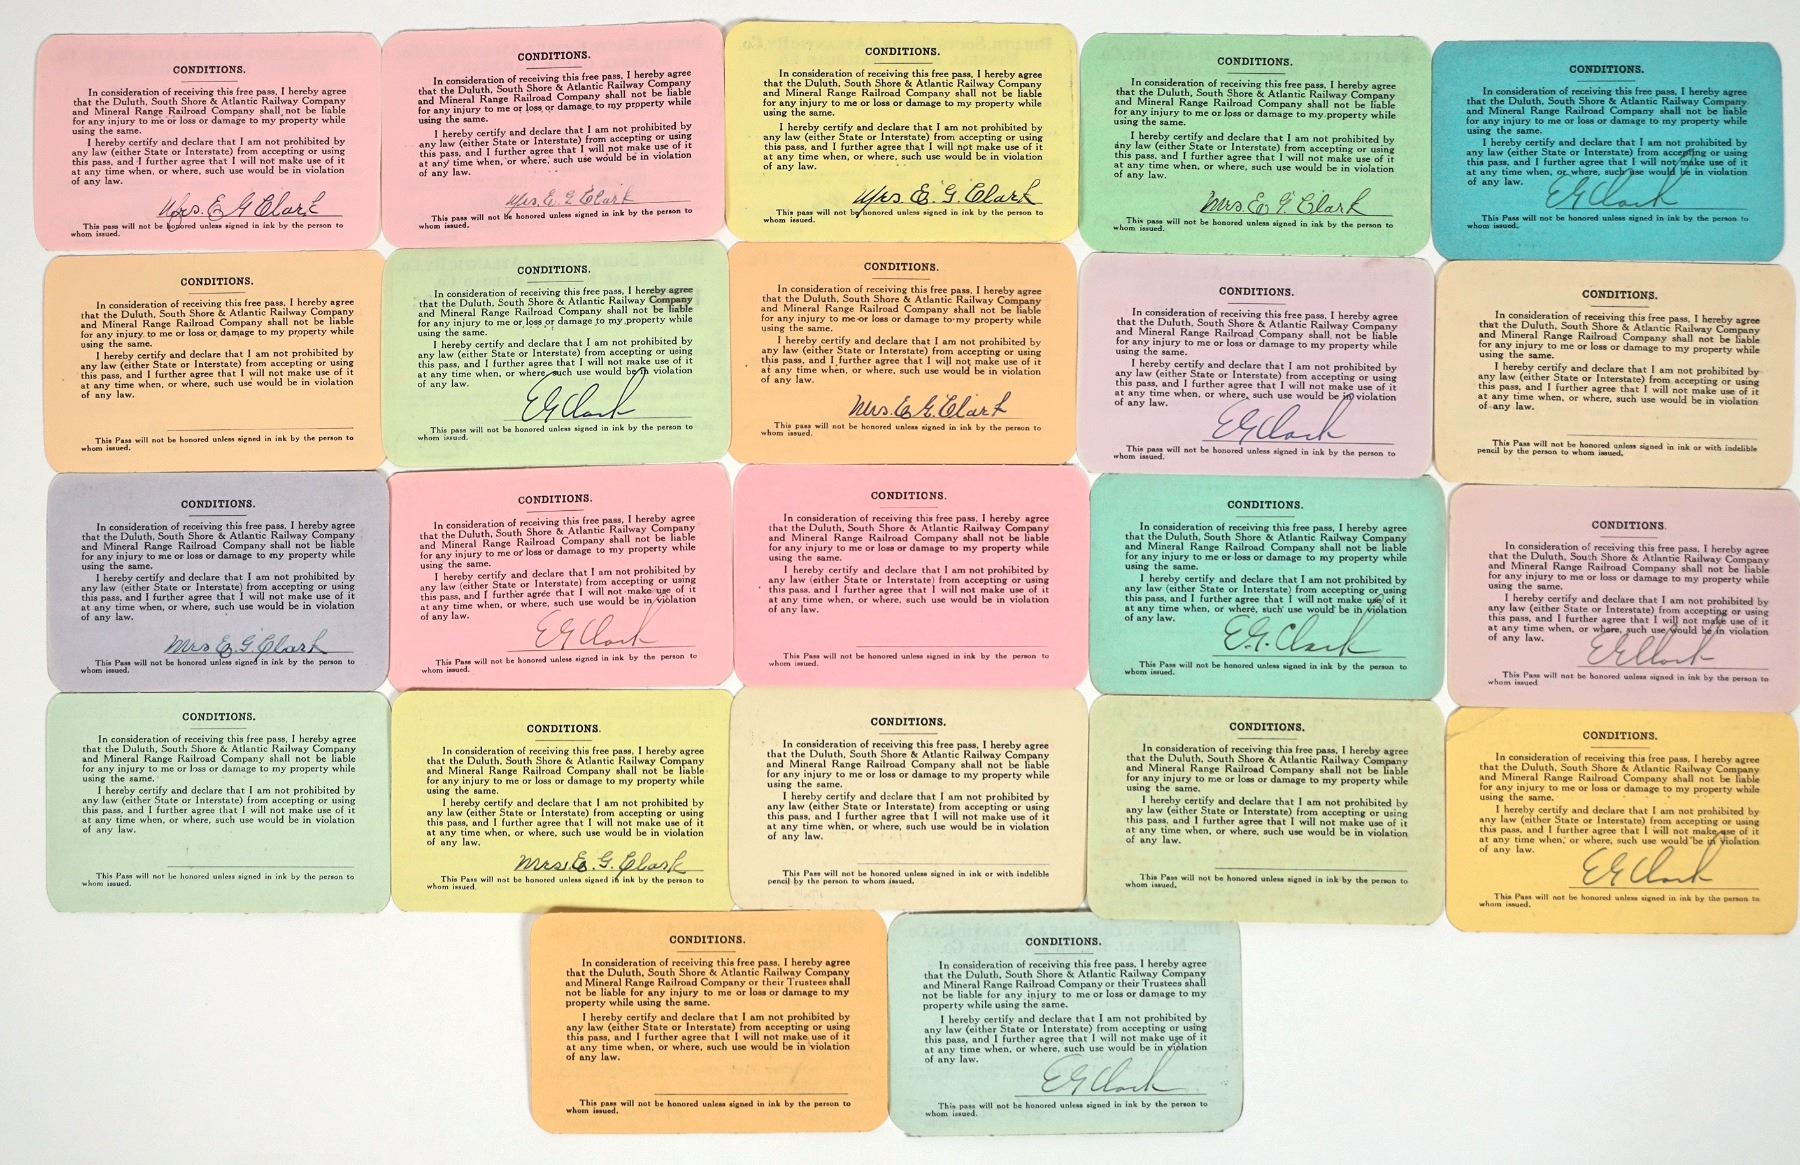 CONDITIONS.
In consideration of receiving this free pass, I hereby agree
that the Duluth, South Shore & Atlantic Railway Company
and Mineral Range Railroad Company shall not be liable
for any injury to me or loss or damage to my property while
using the same.
I hereby certify and declare that I am not prohibited by
any law (either State or Interstate) from accepting or using
this pass, and I further agree that I will not make use of it
at any time when, or where, such use would be in violation
of any law.
Mrs. E G Clark
This pass will not be honored unless signed in ink by the person to
whom issued.
CONDITIONS.
In consideration of receiving this free pass, I hereby agree
that the Duluth, South Shore & Atlantic Railway Company
and Mineral Range Railroad Company shall not be liable
for any injury to me or loss or damage to my property while
using the same.
I hereby certify and declare that I am not prohibited by
any law (either State or Interstate) from accepting or using
this pass, and I further agree that I will not make use of it
at any time when, or where, such use would be in violation
of any law.
Mrs. E. G Clark
This pass will not be honored unless signed in ink by the person to
whom issued.
CONDITIONS.
In consideration of receiving this free pass, I hereby agree
that the Duluth, South Shore & Atlantic Railway Company
and Mineral Range Railroad Company shall not be liable
for any injury to me or loss or damage to my property while
using the same.
I hereby certify and declare that I am not prohibited by
any law (either State or Interstate) from accepting or using
this pass, and I further agree that I will not make use of it
at any time when, or where, such use would be in violation
of any law.
Mrs E. G. Clark
This pass will not be honored unless signed in ink by the person to
whom issued.
CONDITIONS.
In consideration of receiving this free pass, I hereby agree
that the Duluth, South Shore & Atlantic Railway Company
and Mineral Range Railroad Company shall not be liable
for any injury to me or loss or damage to my property while
using the same.
I hereby certify and declare that I am not prohibited by
any law (either State or Interstate) from accepting or using
this pass, and I further agree that I will not make use of it
at any time when, or where, such use would be in violation
of any law.
Mrs. E. G. Clark
This pass will not be honored unless signed in ink by the person to
whom issued.
CONDITIONS.
In consideration of receiving this free pass, I hereby agree
that the Duluth, South Shore & Atlantic Railway Company
and Mineral Range Railroad Company shall not be liable
for any injury to me or loss or damage to my property while
using the same.
I hereby certify and declare that I am not prohibited by
any law (either State or Interstate) from accepting or using
this pass, and I further agree that I will not make use of it
at any time when, or where, such use would be in violation
of any law.
E G Clark
This pass will not be honored unless signed in ink by the person to
whom issued.
CONDITIONS.
In consideration of receiving this free pass, I hereby agree
that the Duluth, South Shore & Atlantic Railway Company
and Mineral Range Railroad Company shall not be liable
for any injury to me or loss or damage to my property while
using the same.
I hereby certify and declare that I am not prohibited by
any law (either State or Interstate) from accepting or using
this pass, and I further agree that I will not make use of it
at any time when, or where, such use would be in violation
of any law.
This Pass will not be honored unless signed in ink by the person to
whom issued.
CONDITIONS.
In consideration of receiving this free pass, I hereby agree
that the Duluth, South Shore & Atlantic Railway Company
and Mineral Range Railroad Company shall not be liable
for any injury to me or loss or damage to my property while
using the same.
I hereby certify and declare that I am not prohibited by
any law (either State or Interstate) from accepting or using
this pass, and I further agree that I will not make use of it
at any time when, or where, such use would be in violation
of any law.
E G Clark
This pass will not be honored unless signed in ink by the person to
whom issued.
CONDITIONS.
In consideration of receiving this free pass, I hereby agree
that the Duluth, South Shore & Atlantic Railway Company
and Mineral Range Railroad Company shall not be liable
for any injury to me or loss or damage to my property while
using the same.
I hereby certify and declare that I am not prohibited by
any law (either State or Interstate) from accepting or using
this pass, and I further agree that I will not make use of it
at any time when, or where, such use would be in violation
of any law.
Mrs. E. G. Clark
This pass will not be honored unless signed in ink by the person to
whom issued.
CONDITIONS.
In consideration of receiving this free pass, I hereby agree
that the Duluth, South Shore & Atlantic Railway Company
and Mineral Range Railroad Company shall not be liable
for any injury to me or loss or damage to my property while
using the same.
I hereby certify and declare that I am not prohibited by
any law (either State or Interstate) from accepting or using
this pass, and I further agree that I will not make use of it
at any time when, or where, such use would be in violation
of any law.
E G Clark
This pass will not be honored unless signed in ink by the person to
whom issued.
CONDITIONS.
In consideration of receiving this free pass, I hereby agree
that the Duluth, South Shore & Atlantic Railway Company
and Mineral Range Railroad Company shall not be liable
for any injury to me or loss or damage to my property while
using the same.
I hereby certify and declare that I am not prohibited by
any law (either State or Interstate) from accepting or using
this pass, and I further agree that I will not make use of it
at any time when, or where, such use would be in violation
of any law.
This Pass will not be honored unless signed in ink or with indelible
pencil by the person to whom issued.
CONDITIONS.
In consideration of receiving this free pass, I hereby agree
that the Duluth, South Shore & Atlantic Railway Company
and Mineral Range Railroad Company shall not be liable
for any injury to me or loss or damage to my property while
using the same.
I hereby certify and declare that I am not prohibited by
any law (either State or Interstate) from accepting or using
this pass, and I further agree that I will not make use of it
at any time when, or where, such use would be in violation
of any law.
Mrs E. G. Clark
This Pass will not be honored unless signed in ink by the person to
whom issued.
CONDITIONS.
In consideration of receiving this free pass, I hereby agree
that the Duluth, South Shore & Atlantic Railway Company
and Mineral Range Railroad Company shall not be liable
for any injury to me or loss or damage to my property while
using the same.
I hereby certify and declare that I am not prohibited by
any law (either State or Interstate) from accepting or using
this pass, and I further agree that I will not make use of it
at any time when, or where, such use would be in violation
of any law.
E G Clark
This Pass will not be honored unless signed in ink by the person to
whom issued.
CONDITIONS.
In consideration of receiving this free pass, I hereby agree
that the Duluth, South Shore & Atlantic Railway Company
and Mineral Range Railroad Company shall not be liable
for any injury to me or loss or damage to my property while
using the same.
I hereby certify and declare that I am not prohibited by
any law (either State or Interstate) from accepting or using
this pass, and I further agree that I will not make use of it
at any time when, or where, such use would be in violation
of any law.
This pass will not be honored unless signed in ink by the person to
whom issued.
CONDITIONS.
In consideration of receiving this free pass, I hereby agree
that the Duluth, South Shore & Atlantic Railway Company
and Mineral Range Railroad Company shall not be liable
for any injury to me or loss or damage to my property while
using the same.
I hereby certify and declare that I am not prohibited by
any law (either State or Interstate) from accepting or using
this pass, and I further agree that I will not make use of it
at any time when, or where, such use would be in violation
of any law.
E. G. Clark
This Pass will not be honored unless signed in ink by the person to
whom issued.
CONDITIONS.
In consideration of receiving this free pass, I hereby agree
that the Duluth, South Shore & Atlantic Railway Company
and Mineral Range Railroad Company shall not be liable
for any injury to me or loss or damage to my property while
using the same.
I hereby certify and declare that I am not prohibited by
any law (either State or Interstate) from accepting or using
this pass, and I further agree that I will not make use of it
at any time when, or where, such use would be in violation
of any law.
E G Clark
This Pass will not be honored unless signed in ink by the person to
whom issued
CONDITIONS.
In consideration of receiving this free pass, I hereby agree
that the Duluth, South Shore & Atlantic Railway Company
and Mineral Range Railroad Company shall not be liable
for any injury to me or loss or damage to my property while
using the same.
I hereby certify and declare that I am not prohibited by
any law (either State or Interstate) from accepting or using
this pass, and I further agree that I will not make use of it
at any time when, or where, such use would be in violation
of any law.
This Pass will not be honored unless signed in ink by the person to
whom issued.
CONDITIONS.
In consideration of receiving this free pass, I hereby agree
that the Duluth, South Shore & Atlantic Railway Company
and Mineral Range Railroad Company shall not be liable
for any injury to me or loss or damage to my property while
using the same.
I hereby certify and declare that I am not prohibited by
any law (either State or Interstate) from accepting or using
this pass, and I further agree that I will not make use of it
at any time when, or where, such use would be in violation
of any law.
Mrs. E. G. Clark
This Pass will not be honored unless signed in ink by the person to
whom issued.
CONDITIONS.
In consideration of receiving this free pass, I hereby agree
that the Duluth, South Shore & Atlantic Railway Company
and Mineral Range Railroad Company shall not be liable
for any injury to me or loss or damage to my property while
using the same.
I hereby certify and declare that I am not prohibited by
any law (either State or Interstate) from accepting or using
this pass, and I further agree that I will not make use of it
at any time when, or where, such use would be in violation
of any law.
This Pass will not be honored unless signed in ink or with indelible
pencil by the person to whom issued.
CONDITIONS.
In consideration of receiving this free pass, I hereby agree
that the Duluth, South Shore & Atlantic Railway Company
and Mineral Range Railroad Company shall not be liable
for any injury to me or loss or damage to my property while
using the same.
I hereby certify and declare that I am not prohibited by
any law (either State or Interstate) from accepting or using
this pass, and I further agree that I will not make use of it
at any time when, or where, such use would be in violation
of any law.
This Pass will not be honored unless signed in ink by the person to
whom issued.
CONDITIONS.
In consideration of receiving this free pass, I hereby agree
that the Duluth, South Shore & Atlantic Railway Company
and Mineral Range Railroad Company shall not be liable
for any injury to me or loss or damage to my property while
using the same.
I hereby certify and declare that I am not prohibited by
any law (either State or Interstate) from accepting or using
this pass, and I further agree that I will not make use of it
at any time when, or where, such use would be in violation
of any law.
E G Clark
This Pass will not be honored unless signed in ink by the person to
whom issued.
CONDITIONS.
In consideration of receiving this free pass, I hereby agree
that the Duluth, South Shore & Atlantic Railway Company
and Mineral Range Railroad Company or their Trustees shall
not be liable for any injury to me or loss or damage to my
property while using the same.
I hereby certify and declare that I am not prohibited by
any law (either State or Interstate) from accepting or using
this pass, and I further agree that I will not make use of it
at any time when, or where, such use would be in violation
of any law.
This pass will not be honored unless signed in ink by the person to
whom issued.
CONDITIONS.
In consideration of receiving this free pass, I hereby agree
that the Duluth, South Shore & Atlantic Railway Company
and Mineral Range Railroad Company or their Trustees shall
not be liable for any injury to me or loss or damage to my
property while using the same.
I hereby certify and declare that I am not prohibited by
any law (either State or Interstate) from accepting or using
this pass, and I further agree that I will not make use of it
at any time when, or where, such use would be in violation
of any law.
E G Clark
This pass will not be honored unless signed in ink by the person to
whom issued.